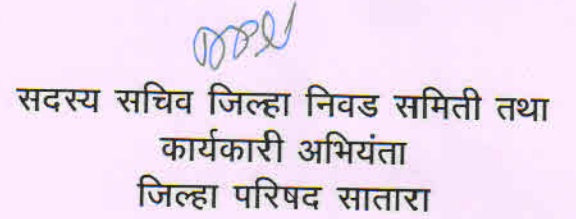 सदस्य सचिव जिल्हा निवड समिती तथा
कार्यकारी अभियंता
जिल्हा परिषद सातारा